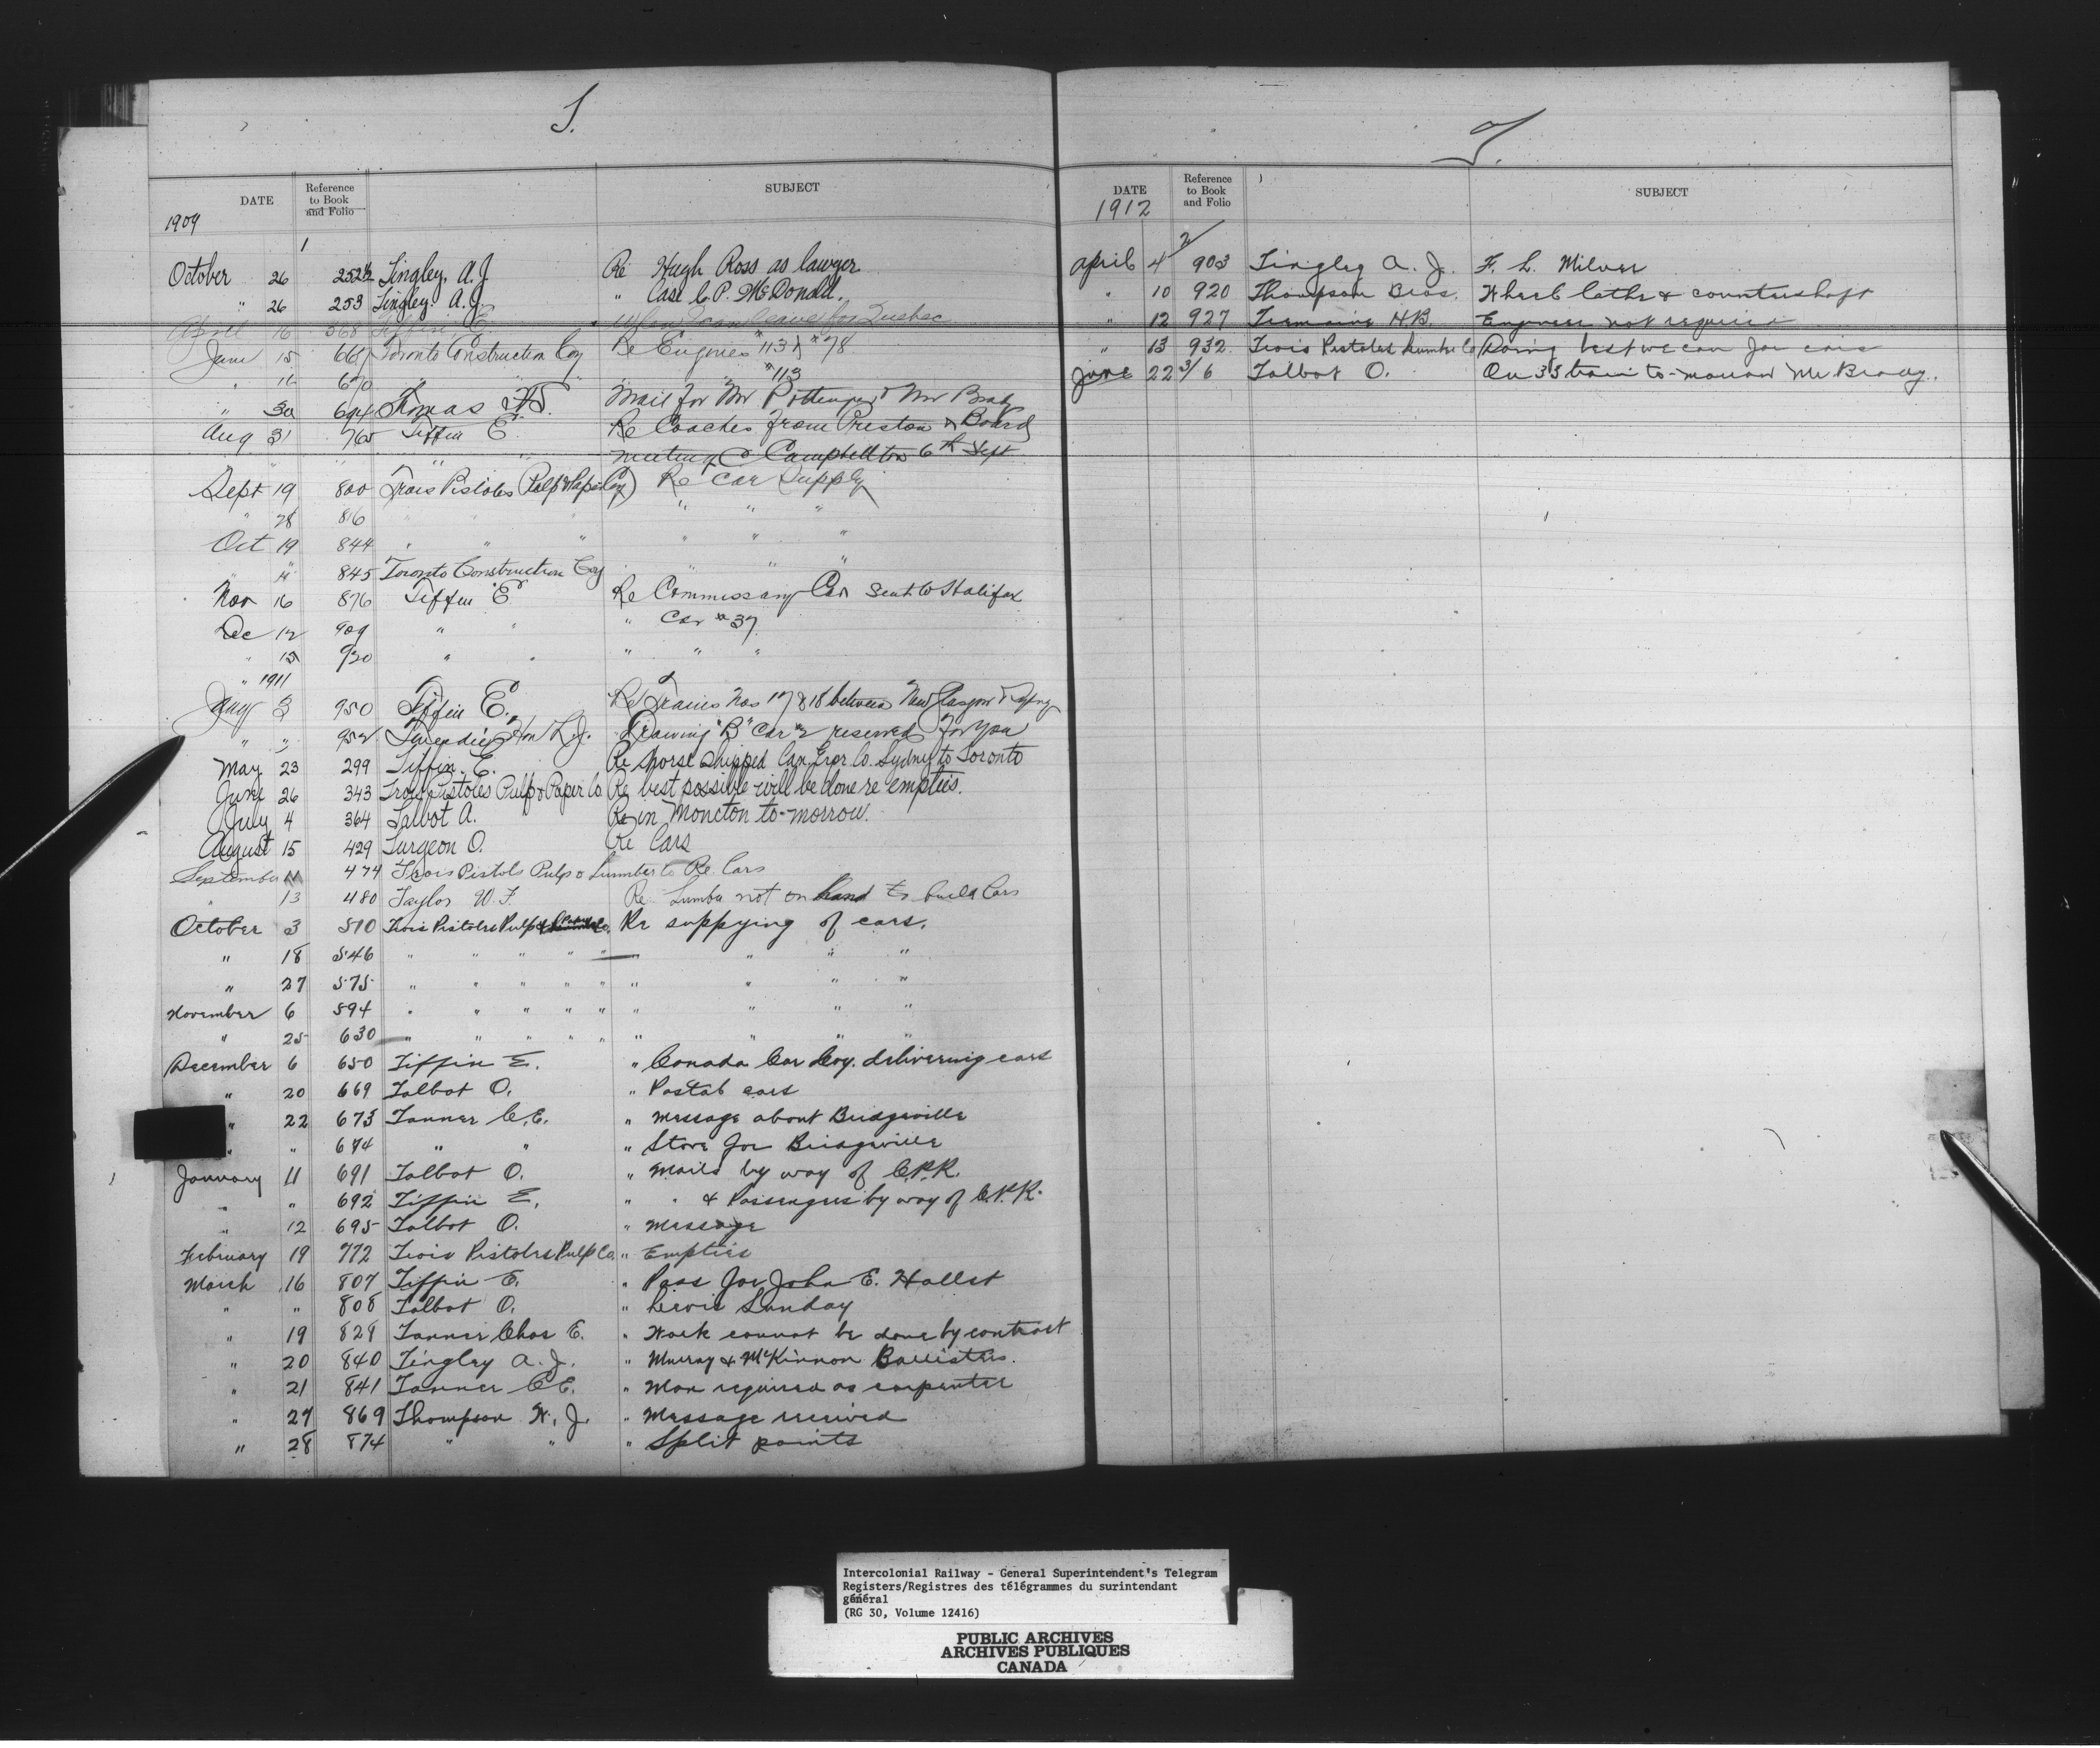 T.
DATE Reference to Book and Folio SUBJECT
1909
1
October 26 252½ Tingley, A.J. Re Hugh Ross as lawyer
" 26 253 Tingley A.J. " Case C.P. McDonald.
April 16 568 Tiffin, E. " When I can leave for Quebec
June 15 667 Toronto Construction Coy Re Engines #113 & #78
" 16 670 " " " #113
" 30 694 Thomas Mail for Mr Pottinger & Mr Brady
Aug 31 765 Tiffin E. Re Coaches from Preston & Board
" " " meeting @ Campbellton 6th Sept
Sept 19 800 Trois Pistoles (Pulp & Paper Coy) Re Car Supply
" 28 816 " " " " " "
Oct 19 844 " " " " " "
" " 845 Toronto Construction Coy " " "
Nov 16 876 Tiffin E Re Commissary Car sent to Halifax
Dec 12 909 " " " Car #37
" 15 920 " " " " "
" 1911
Jany 3 950 Tiffin E. Re Trains Nos 17 & 18 between New Glasgow &
" " 952 Hon L.J. Drawing "B" Car #2 reserved for you
May 23 299 Tiffin. E. Re horse shipped Can. Expr. Co. Sydney to Toronto
June 26 343 Trois Pistoles Pulp & Paper Co Re best possible will be done re empties.
July 4 364 Talbot A. Re in Moncton to-morrow.
August 15 429 Turgeon O. Re Cars
September 11 474 Trois Pistols Pulp & Lumber Co Re. Cars
" 13 480 Taylor W.F. Re. Lumber not on hand to build Cars
October 3 510 Trois Pistoles Pulp & Co. Re supplying of cars.
" 18 546 " " " " " " " "
" 27 575 " " " " " " " " "
November 6 594 " " " " " " " " "
" 25 630 " " " " " " " " "
December 6 650 Tiffin E. " Canada Car Coy. delivering cars
" 20 669 Talbot O. " Postal cars
" 22 673 Tanner C.E. " Message about Bridgeville
" " 674 " " " Stove for Bridgeville
January 11 691 Talbot O. " Mails by way of C.P.R.
" " 692 Tiffin E. " " & Passengers by way of C.P.R.
" 12 695 Talbot O. " Message
February 19 772 Trois Pistoles Pulp Co. " Empties
March 16 807 Tiffin E. " Pass for John E. Hallet
" " 808 Talbot O. " Levis Sunday
" 19 829 Tanner Chas E. " Work cannot be done by contract
" 20 840 Tingley A.J. " Murray & McKinnon
" 21 841 Tanner C E. " Man required as carpenter
" 27 869 Thompson W.J. " Message received
" 28 874 " " " Split points
T.
DATE Reference to Book and Folio SUBJECT
1912
2/
April 4 903 Tingley A.J. F. L. Milner
" 10 920 Thompson Bros. Wheel lathe & countershaft
" 12 927 Tremaine H.B. Engineer not required
" 13 932 Trois Pistoles Lumber Co Doing best we can for cars
June 22 3/6 Talbot O. On 33 train to-morrow Mr. Brady.
Intercolonial Railway - General Superintendent's Telegram
Registers/Registres des télégrammes du surintendant
général
(RG 30, Volume 12416)
PUBLIC ARCHIVES
ARCHIVES PUBLIQUES
CANADA